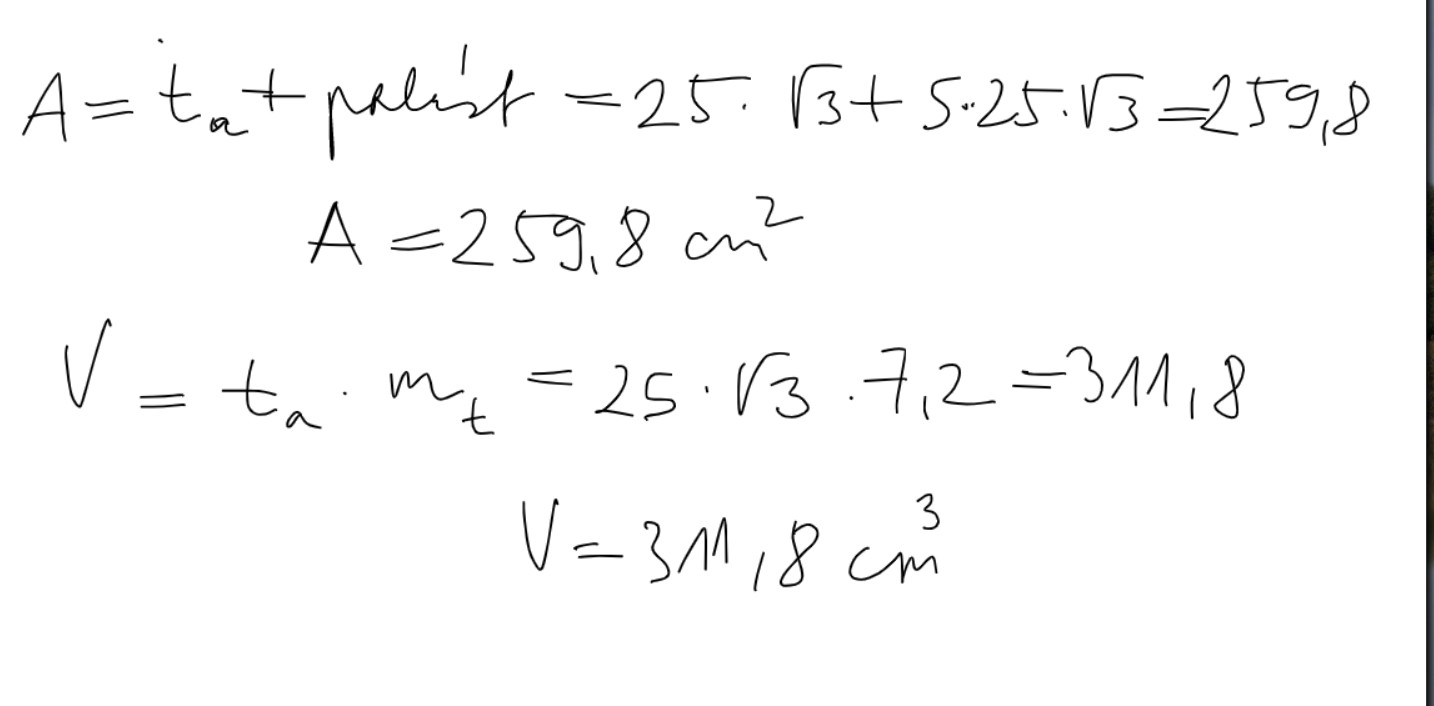 A = tₐ + palást = 25 · √3 + 5 · 25 · √3 = 259,8
A = 259,8 cm²
V = tₐ · mₜ = 25 · √3 · 7,2 = 311,8
V = 311,8 cm³